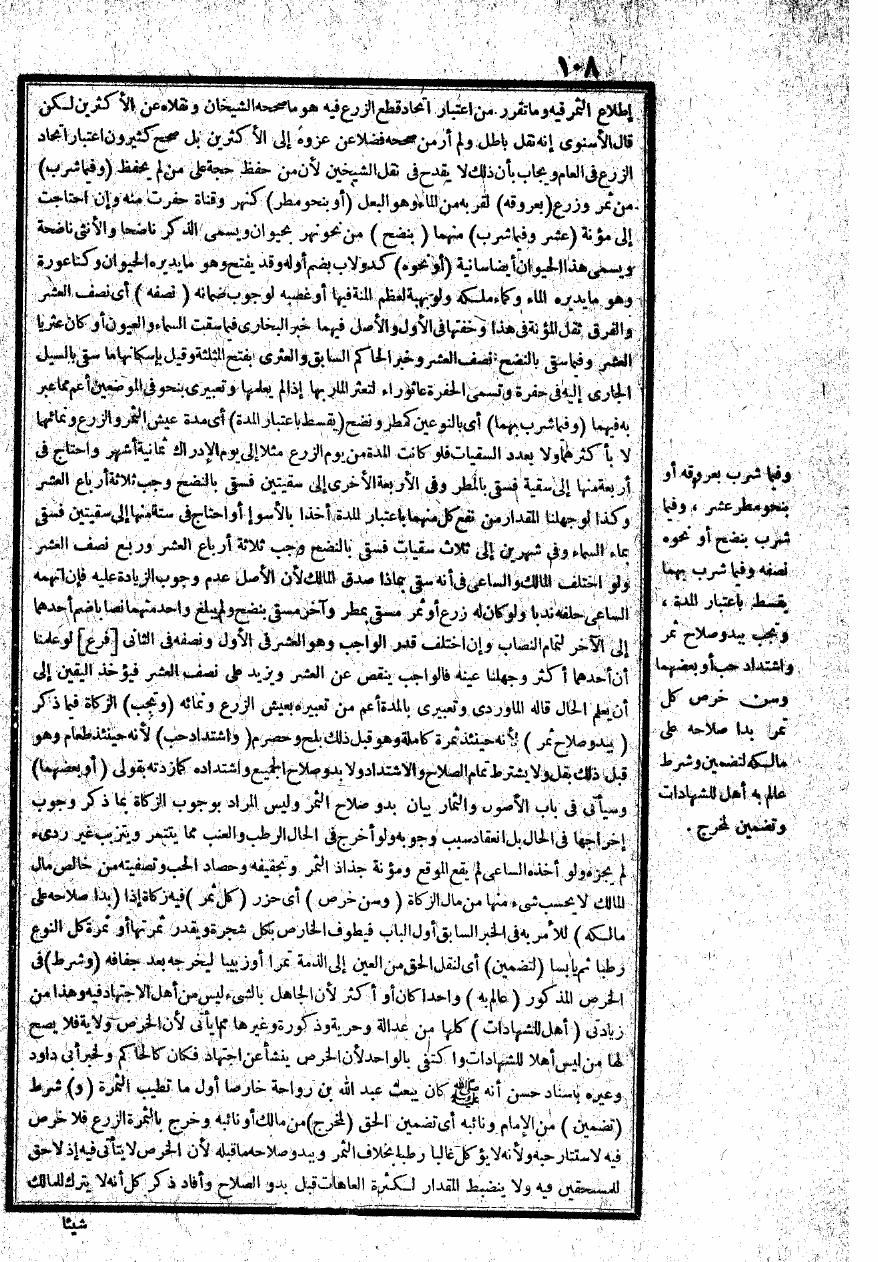 ١٠٨
إطلاع الثمر فيه وما تقرر من اعتبار اتحاد قطع الزرع فيه هو ما صححه الشيخان ونقلاه عن الأكثرين لكن
قال الأسنوى إنه نقل باطل ولم أر من صححه فضلا عن عزوه إلى الأكثرين بل صحح كثيرون اعتبار اتحاد
الزرع فى العام ويجاب بأن ذلك لا يقدح فى نقل الشيخين لأن من حفظ حجة على من لم يحفظ (وفيما شرب)
من ثمر وزرع (بعروقه) لقربه من الماء وهو البعل (أو بنحو مطر) كنهر وقناة حفرت منه وإن احتاجت
إلى مؤنة (عشر وفيما شرب) منهما (بنضح) من نحو نهر بحيوان ويسمى الذكر ناضحا والأنثى ناضحة
ويسمى هذا الحيوان أيضا سانية (أو نحوه) كدولاب بضم أوله وقد يفتح وهو ما يديره الحيوان وكناعورة
وهو ما يديره الماء وكماء ملكه ولو بهبة لعظم المنة فيها أو غصبه لوجوب ضمانه (نصفه) أى نصف العشر
والفرق ثقل المؤنة فى هذا وخفتها فى الأول والأصل فيهما خبر البخارى فيما سقت السماء والعيون أو كان عثريا
العشر وفيما سقى بالنضح نصف العشر وخبر الحاكم السابق والعثرى بفتح المثلثة وقيل بإسكانها ما سقى بالسيل
الجارى إليه فى حفرة وتسمى الحفرة عاثوراء لتعثر المار بها إذا لم يعلمها وتعبيرى بنحو فى الموضعين أعم مما عبر
به فيهما (وفيما شرب بهما) أى بالنوعين كمطر ونضح (يقسط باعتبار المدة) أى مدة عيش الثمر والزرع ونمائهما
لا بأكثرهما ولا بعدد السقيات فلو كانت المدة من يوم الزرع مثلا إلى يوم الإدراك ثمانية أشهر واحتاج فى
أربعة منها إلى سقية فسقى بالمطر وفى الأربعة الأخرى إلى سقيتين فسقى بالنضح وجب ثلاثة أرباع العشر
وكذا لو جهلنا المقدار من نفع كل منهما باعتبار المدة أخذا بالأسوإ أو احتاج فى ستة منها إلى سقيتين فسقى
بماء السماء وفى شهرين إلى ثلاث سقيات فسقى بالنضح وجب ثلاثة أرباع العشر وربع نصف العشر
ولو اختلف المالك والساعى فى أنه سقى بماذا صدق المالك لأن الأصل عدم وجوب الزيادة عليه فإن اتهمه
الساعى حلفه ندبا ولو كان له زرع أو ثمر مسقى بمطر وآخر مسقى بنضح ولم يبلغ واحد منهما نصابا ضم أحدهما
إلى الآخر لتمام النصاب وإن اختلف قدر الواجب وهو العشر فى الأول ونصفه فى الثانى [فرع] لو علمنا
أن أحدهما أكثر وجهلنا عينه فالواجب ينقص عن العشر ويزيد على نصف العشر فيؤخذ اليقين إلى
أن يعلم الحال قاله الماوردى وتعبيرى بالمدة أعم من تعبيره بعيش الزرع ونمائه (وتجب) الزكاة فيما ذكر
(ببدو صلاح ثمر) لأنه حينئذ ثمرة كاملة وهو قبل ذلك بلح وحصرم (واشتداد حب) لأنه حينئذ طعام وهو
قبل ذلك بقل ولا يشترط تمام الصلاح والاشتداد ولا بدو صلاح الجميع واشتداده كما زدته بقولى (أو بعضهما)
وسيأتى فى باب الأصول والثمار بيان بدو صلاح الثمر وليس المراد بوجوب الزكاة بما ذكر وجوب
إخراجها فى الحال بل انعقاد سبب وجوبه ولو أخرج فى الحال الرطب والعنب مما يتتمر ويتزبب غير ردىء
لم يجزه ولو أخذه الساعى لم يقع الموقع ومؤنة جذاذ الثمر وتجفيفه وحصاد الحب وتصفيته من خالص مال
المالك لا يحسب شىء منها من مال الزكاة (وسن خرص) أى حزر (كل ثمر) فيه زكاة إذا (بدا صلاحه على
مالكه) للأمر به فى الخبر السابق أول الباب فيطوف الخارص بكل شجرة ويقدر ثمرتها أو ثمرة كل النوع
رطبا ثم يابسا (لتضمين) أى لنقل الحق من العين إلى الذمة تمرا أو زبيبا ليخرجه بعد جفافه (وشرط) فى
الخرص المذكور (عالم به) واحدا كان أو أكثر لأن الجاهل بالشىء ليس من أهل الاجتهاد فيه وهذا من
زيادتى (أهل للشهادات) كلها من عدالة وحرية وذكورة وغيرها مما يأتى لأن الخرص ولاية فلا يصح
لها من ليس أهلا للشهادات واكتفى بالواحد لأن الخرص ينشأ عن اجتهاد فكان كالحاكم ولخبر أبى داود
وغيره بإسناد حسن أنه ﷺ كان يبعث عبد الله بن رواحة خارصا أول ما تطيب الثمرة (و) شرط
(تضمين) من الإمام ونائبه أى تضمين الحق (لمخرج) من مالك أو نائبه وخرج بالثمرة الزرع فلا خرص
فيه لاستتار حبه ولأنه لا يؤكل غالبا رطبا بخلاف الثمر وببدو صلاحه ما قبله لأن الخرص لا يتأتى فيه إذ لا حق
للمستحقين فيه ولا ينضبط المقدار لكثرة العاهات قبل بدو الصلاح وأفاد ذكر كل أنه لا يترك للمالك
شيئا
وفيما شرب بعروقه أو
بنحو مطر عشر، وفيما
شرب بنضح أو نحوه
نصفه وفيما شرب بهما
يقسط باعتبار المدة،
وتجب ببدو صلاح ثمر
واشتداد حب أو بعضهما
وسن خرص كل
ثمر بدا صلاحه على
مالكه لتضمين وشرط
عالم به أهل للشهادات
وتضمين لمخرج.